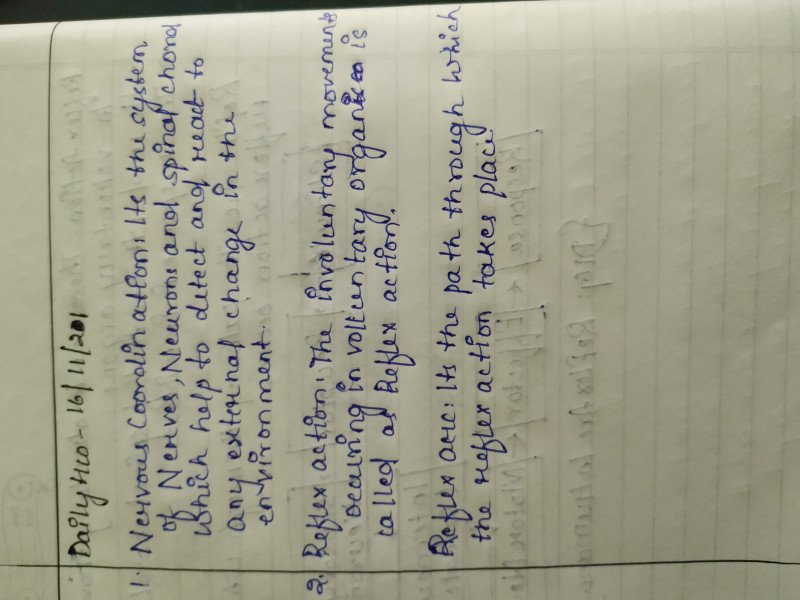 Daily HW - 16/11/201
1. Nervous Coordination: Its the system
of Nerves, Neurons and spinal chord
which help to detect and react to
any external change in the
environment.
2. Reflex action: The involuntary movement
occuring in voluntary organs is
called as Reflex action.
Reflex arc: Its the path through which
the reflex action takes place